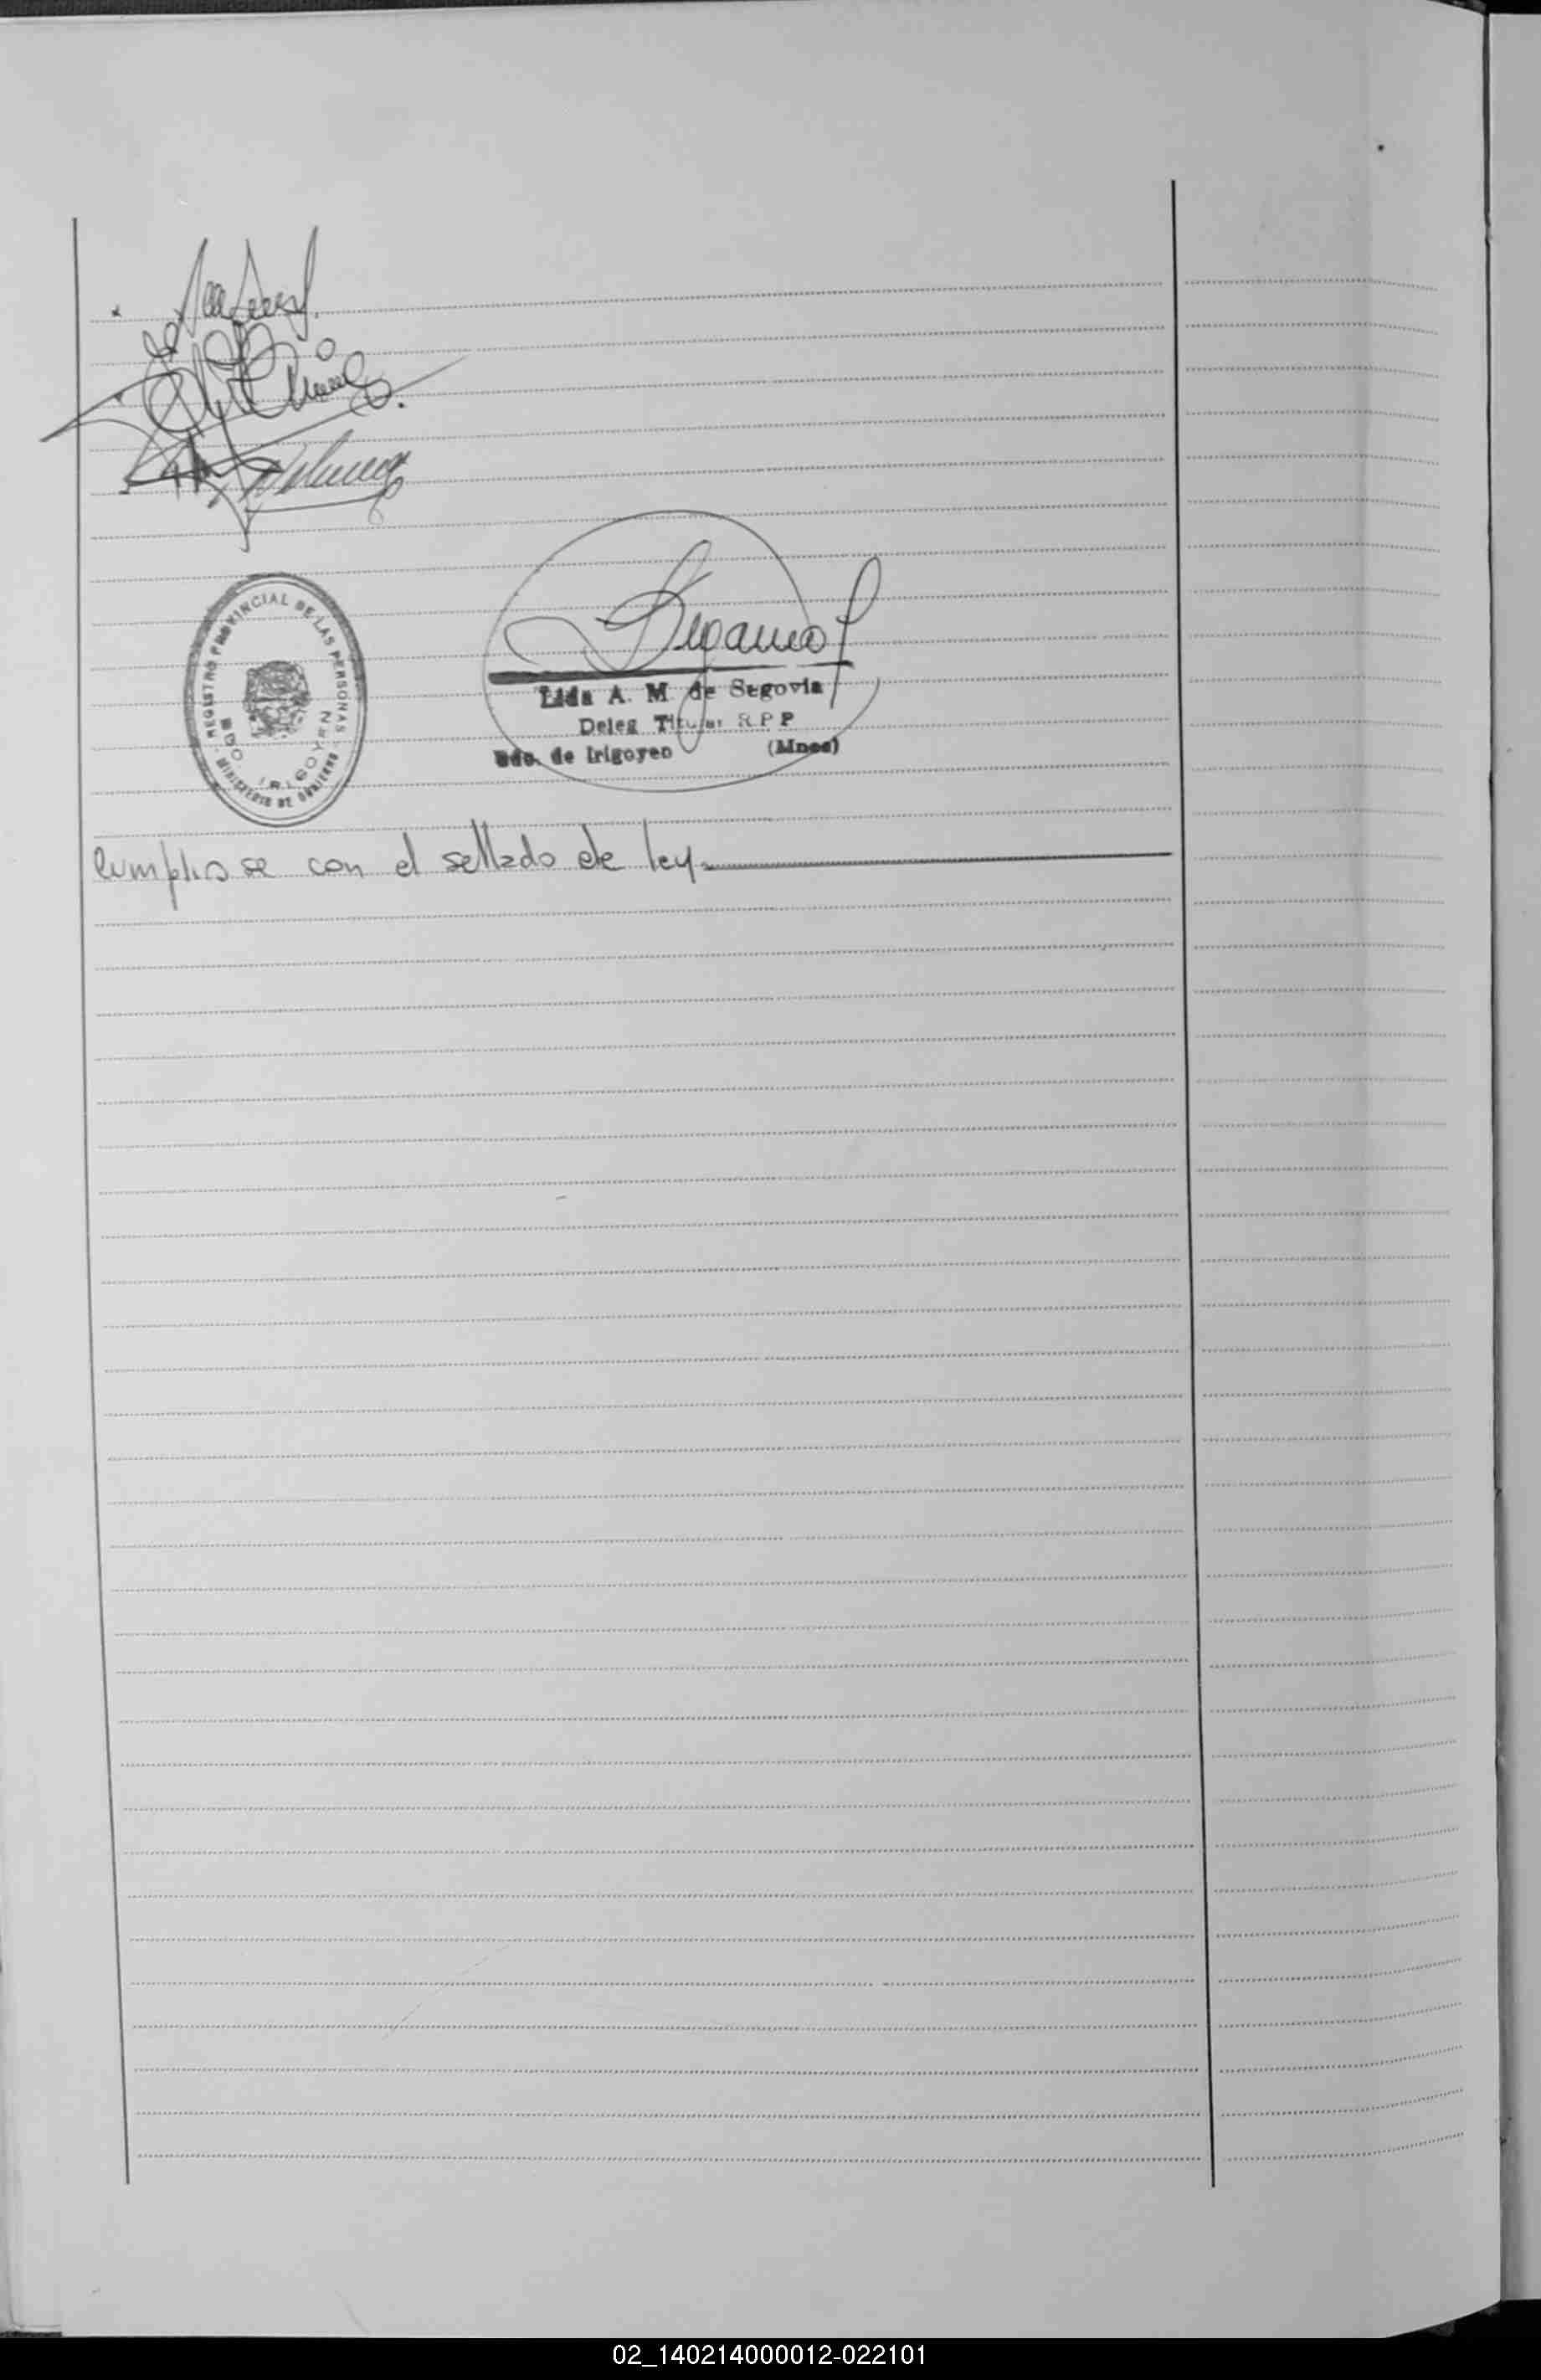 REGISTRO PROVINCIAL DE LAS PERSONAS
BDO. IRIGOYEN
MINISTERIO DE GOBIERNO
Lida A. M. de Segovia
Deleg. Titular R P P
Bdo. de Irigoyen (Mnes)
Cumpliose con el sellado de ley.
02_140214000012-022101